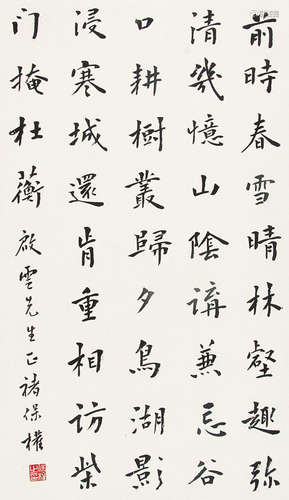 前時春雪晴林壑趣弥
清幾憶山陰講兼忘谷
口耕樹叢歸夕鳥湖影
浸寒城還肯重相訪柴
门掩杜蘅 啟雲先生正 褚保權